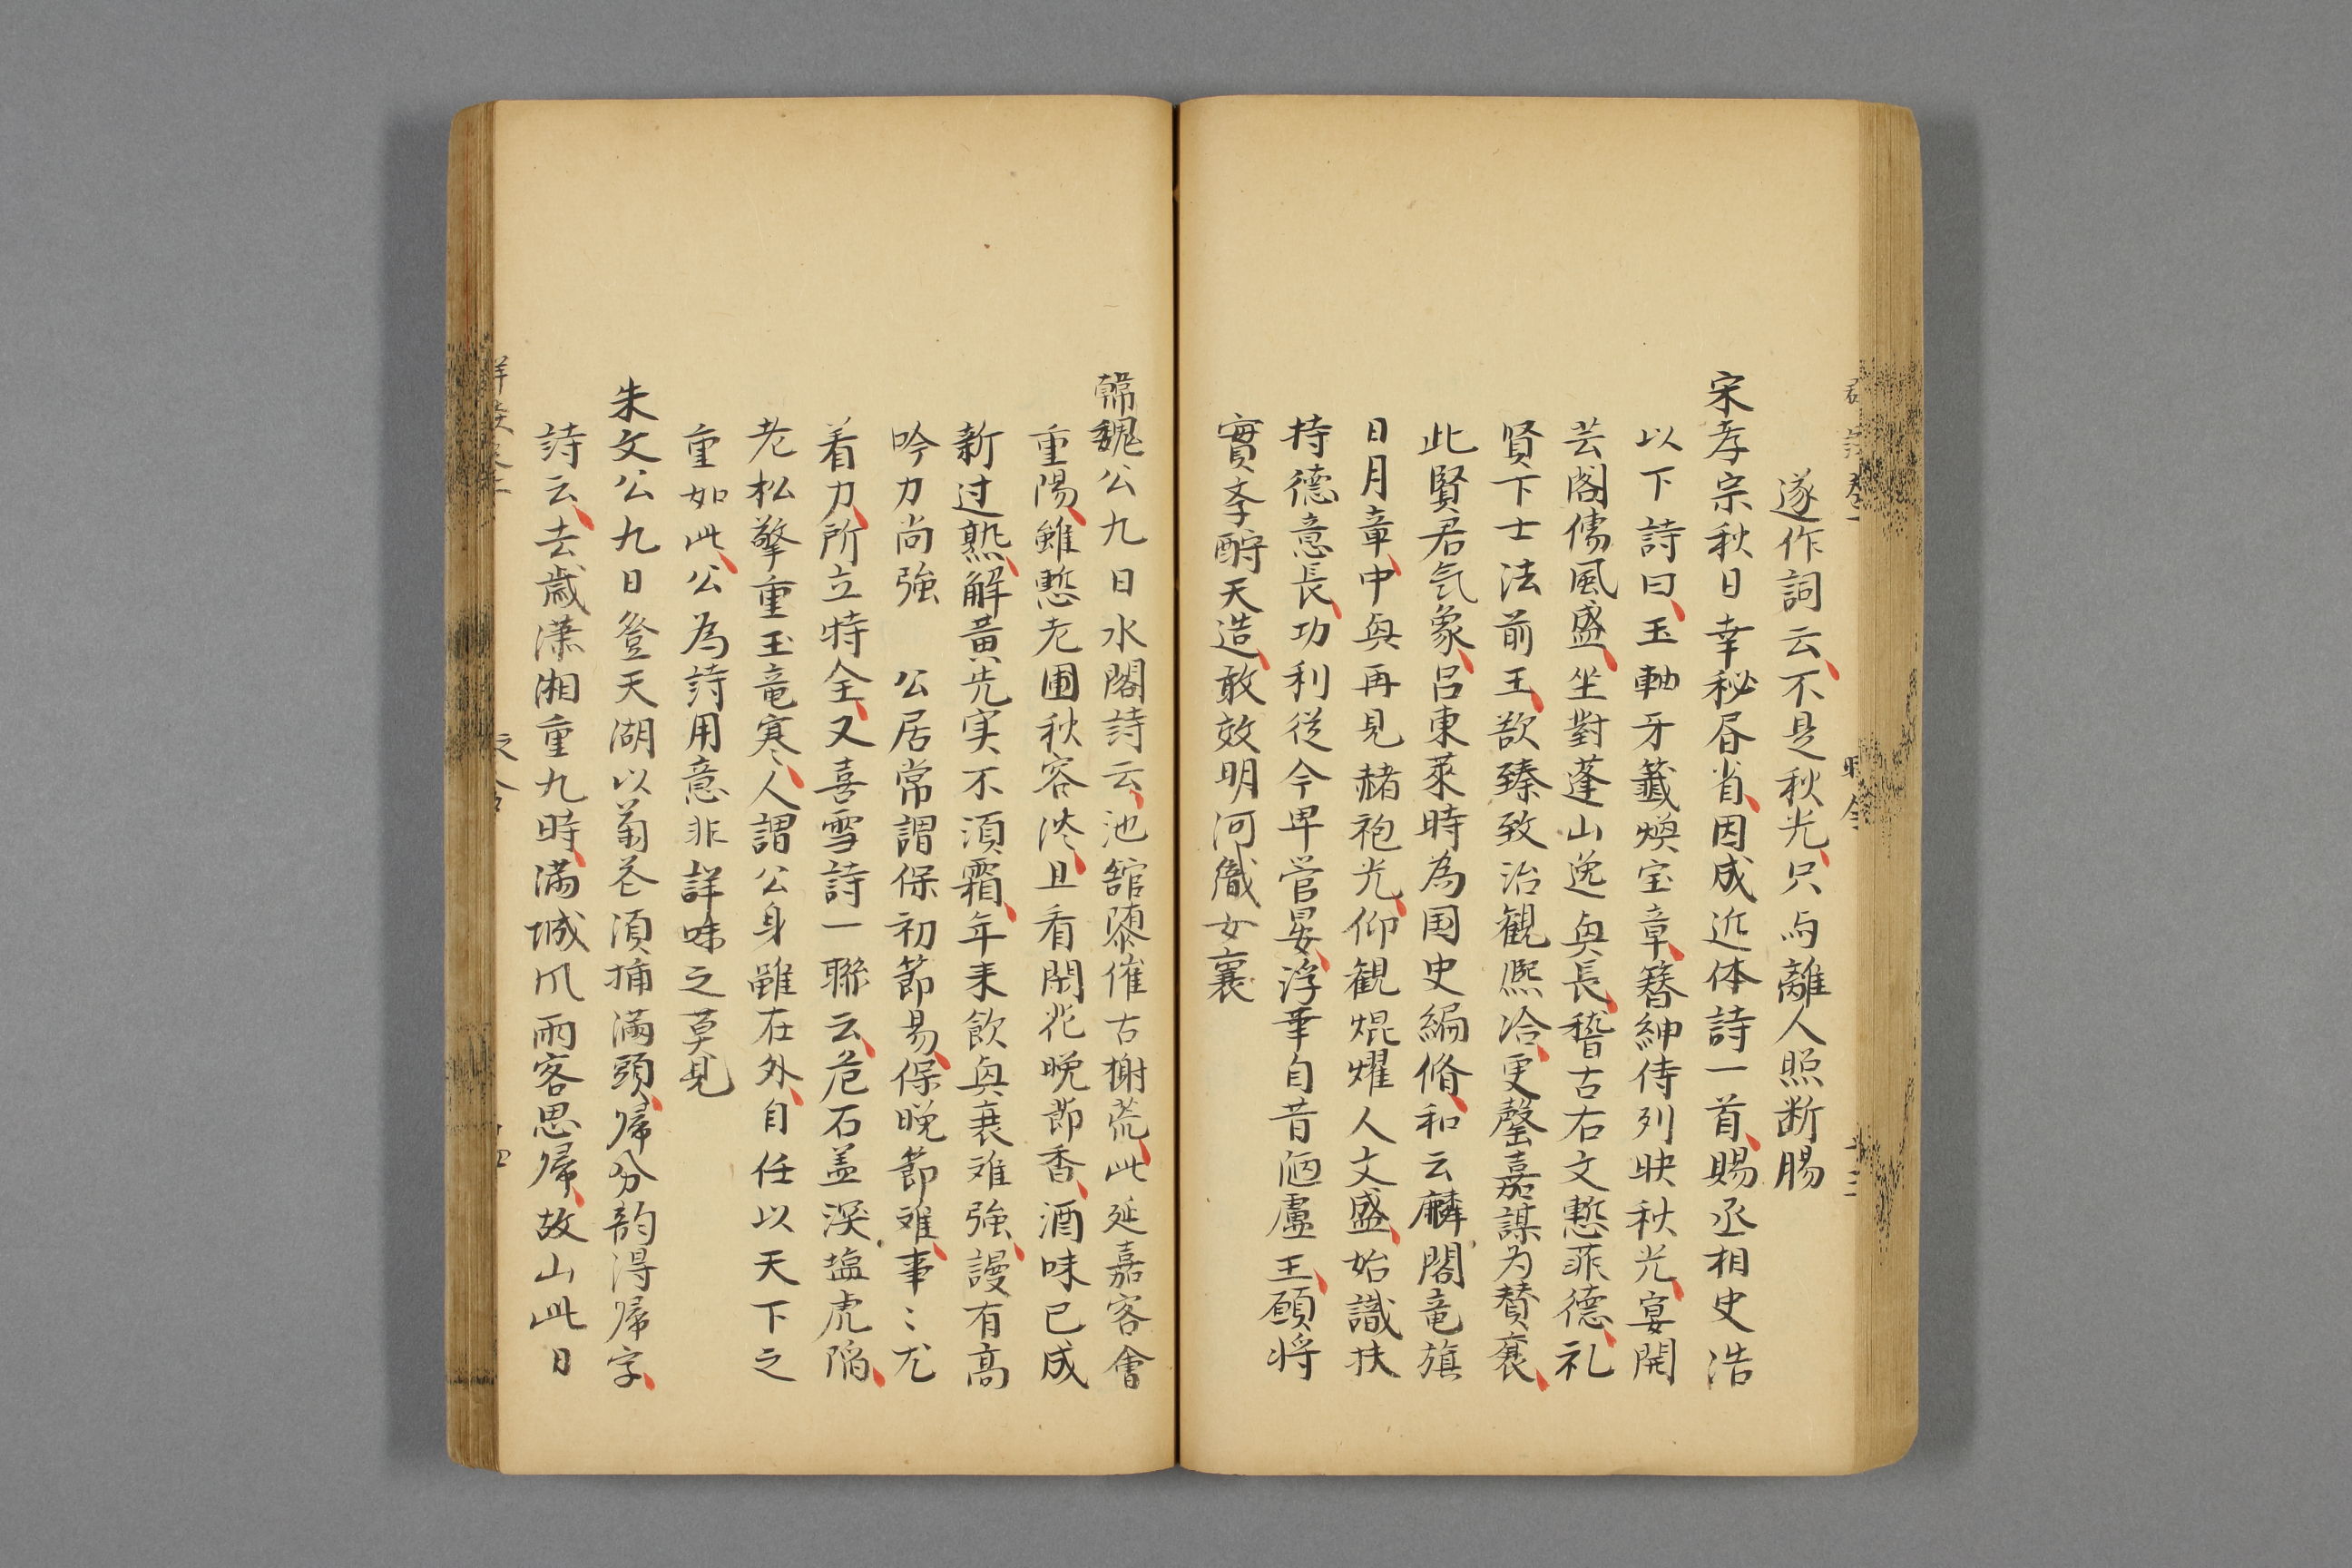 遂作詞云不是秋光只与離人照断腸
宋孝宗秋日幸秘書省因成近体詩一首賜丞相史浩
以下詩曰玉軸牙籤煥宝章簪紳侍列映秋光宴開
芸閣儒風盛坐對蓬山逸興長稽古右文慙菲德礼
賢下士法前王欲臻致治観熙洽更罄嘉謀为賛襄
此賢君気象呂東萊時為国史編脩和云麟閣竜旗
日月章中興再見赭袍光仰観焜燿人文盛始識扶
持德意長功利従今卑管晏浮華自昔陋盧王願将
實李酧天造敢效明河織女襄
韓魏公九日水閣詩云池舘隳催古榭荒此延嘉客會
重陽雖慙老圃秋容淡且看閑花晚節香酒味已成
新过熟解黃先实不須霜年来飲興衰难強謾有高
吟力尚強 公居常謂保初節易保晚節难事〻尤
着力所立特全又喜雪詩一聯云危石盖深塩虎陷
老松擎重玉竜寒人謂公身雖在外自任以天下之
重如此公為詩用意非詳味之莫見
朱文公九日登天湖以菊花須插滿頭帰分韵得帰字
詩云去歲潇湘重九時滿城风雨客思帰故山此日